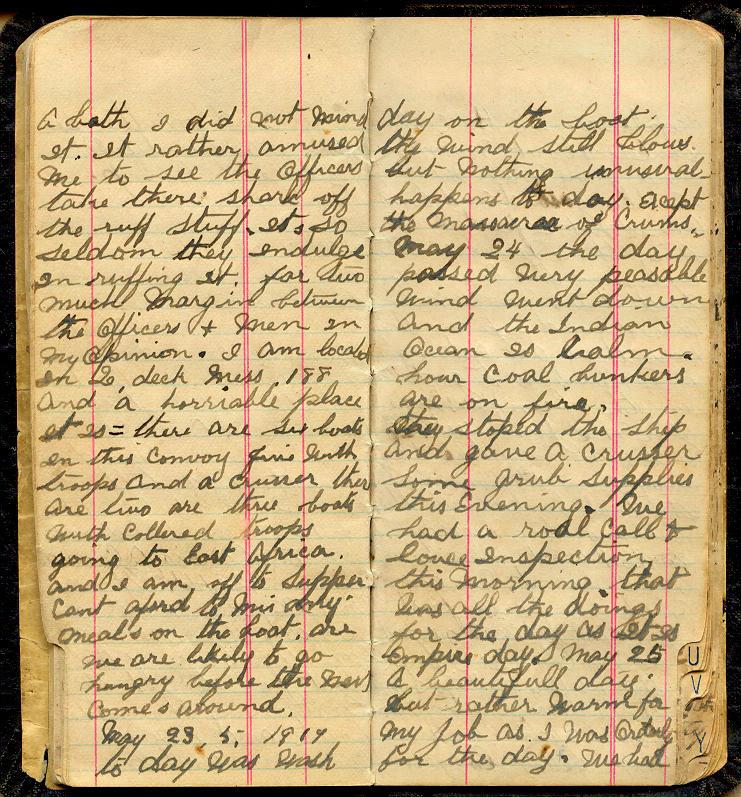 A bath I did not mind
it. It rather amused
me to see the Officers
take there share off
the ruff stuff. its so
seldom they indulge
in ruffing it. far two
much margin between
the Officers & Men in
my Opinion. I am located
in D deck Mess 188
and a horriable place
it is = there are six boats
in this convoy five with
troops and a cruser ther
are two are three boats
with collered troops
going to East Africa.
and I am off to supper
Cant aford to mis any
meals on the boat. are
we are likely to go
hungry before the next
comes around.
May 23. 5. 1917
to day was wash
day on the boat.
the wind still blows.
but nothing unusual
happens to day. Except
the massacree of Crums.
May 24 the day
passed very peasable
wind went down
and the Indian
Ocean is calm.
hour Coal bunkers
are on fire.
they stoped the ship
and gave a crusser
some grub supplies
this Evening. We
had a roal Call &
Inspection
this morning. that
was all the doings
for the day as it is
Empire day. May 25
A beautifull day.
but rather warm for
my job as I was Orderly
for the day. We had
U
V
Y